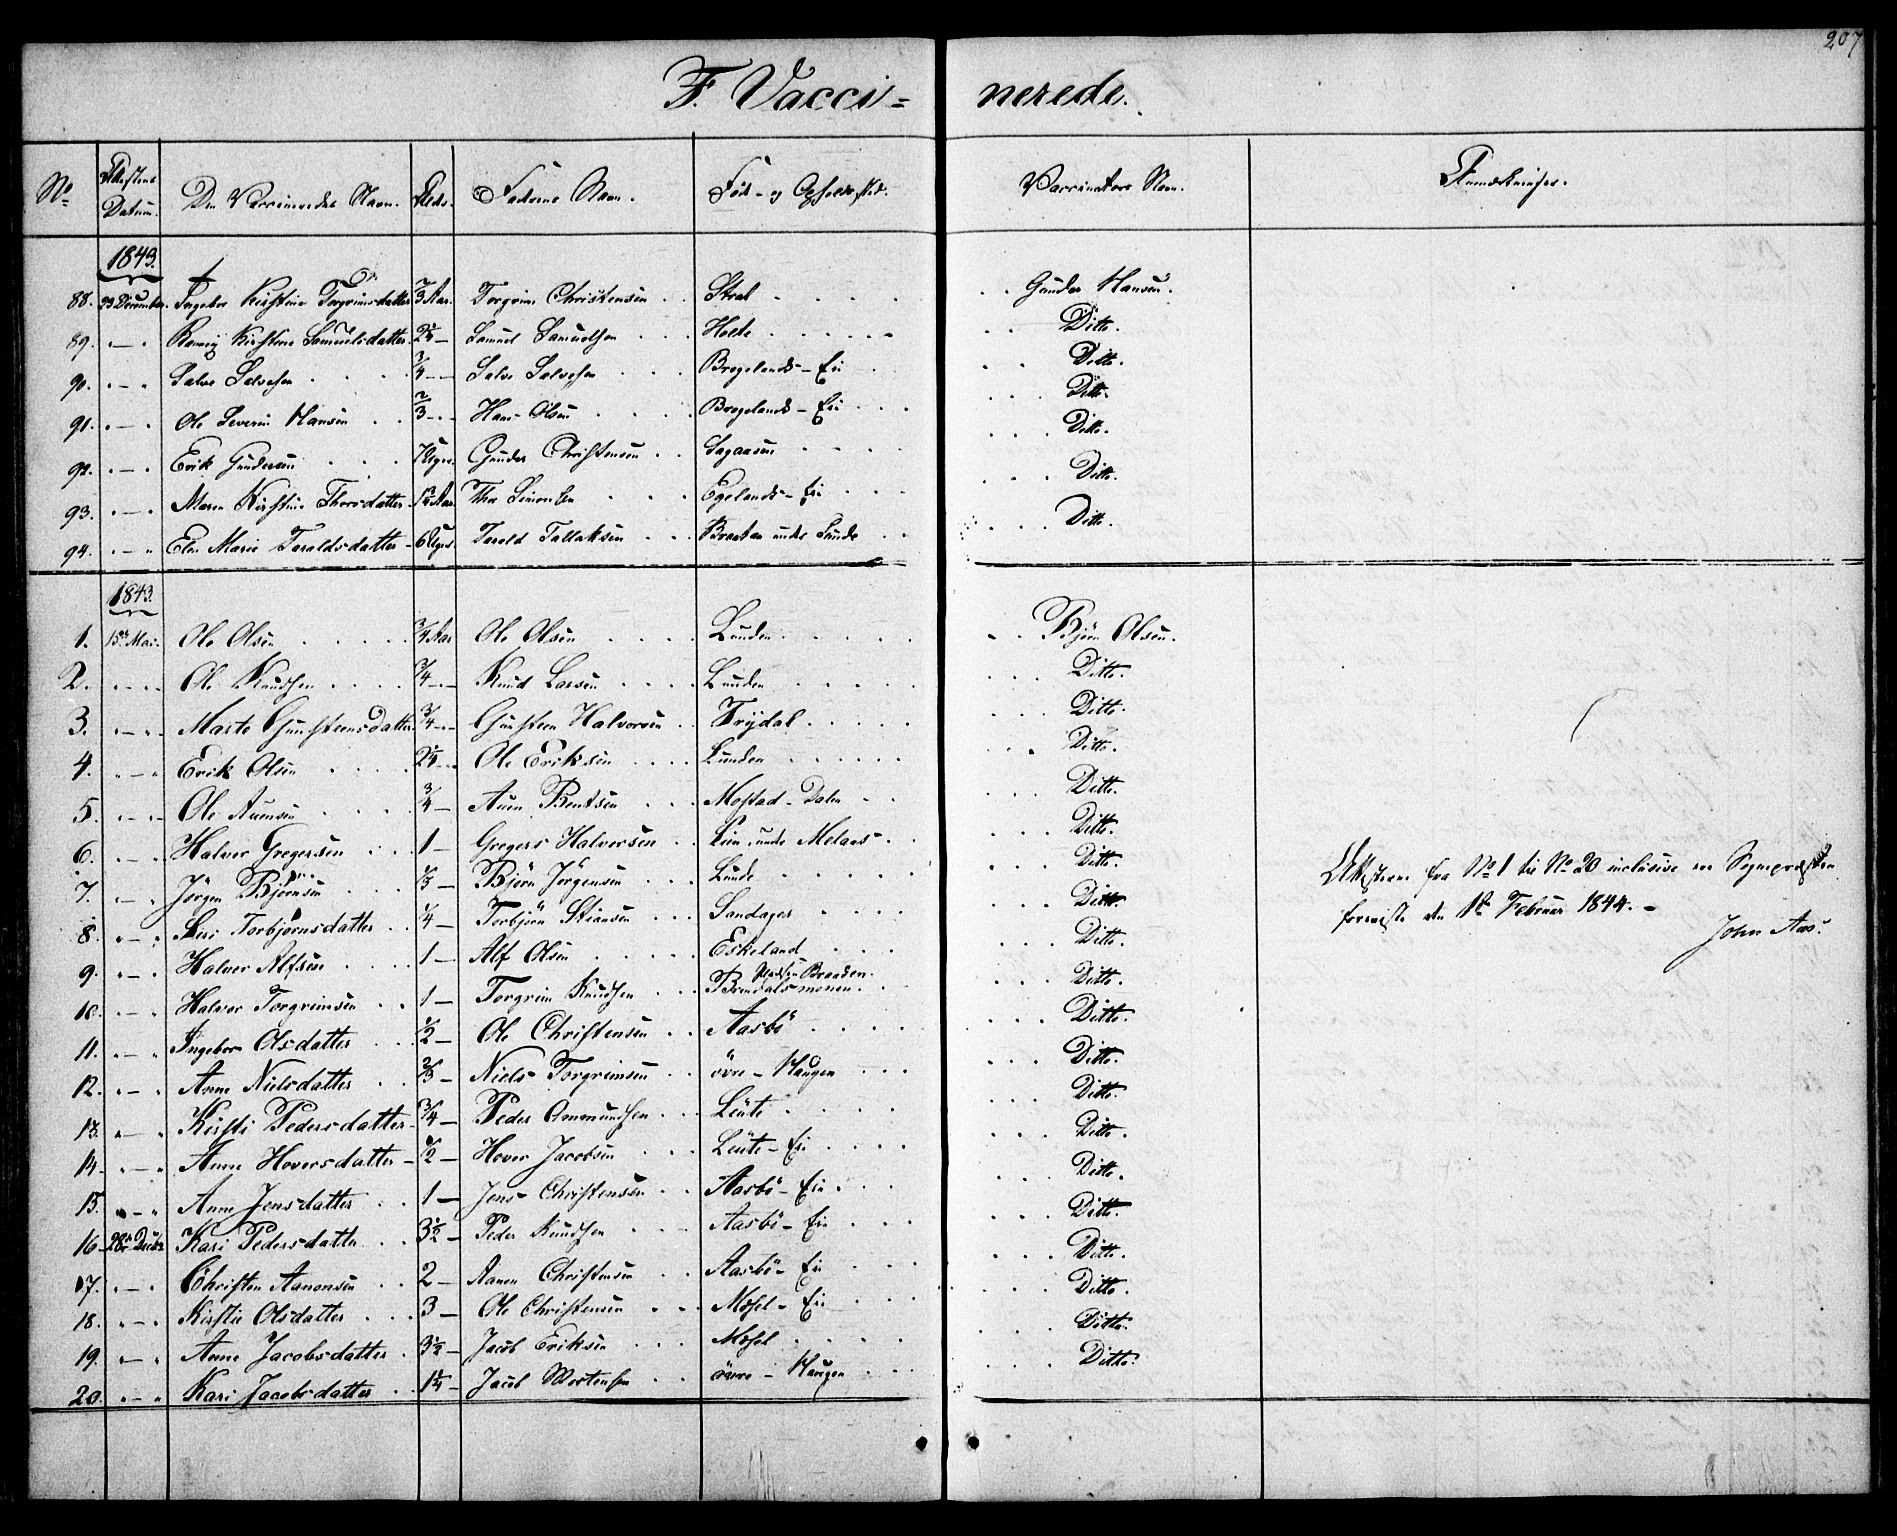 207
F. Vacci- nerede.
No Attestens Datum. De Vaccineredes Navn. Alder. Fædrenes Navn. Føde- og Opholds Sted. Vaccinateurs Navn. Anmærkninger.
1843.
88. 23 December. Ingebor Kirstine Torgrimsdatter 2/3 Aar. Torgrim Christensen Gunder Hansen.
89. " — " Kirstine Samuelsdatter Samuel Samuelsen Holte Ditto.
90. " — " Salve Salvesen 3/4 — Salve Salvesen Bregelands - Eie Ditto.
91. " — " Ole Severin Hansen 2/3 — Hans Olsen Bregelands - Eie Ditto.
92. " — " Erik Gundersen 7 Uger. Gunder Christensen Sagaasen Ditto.
93. " — " Maren Kirstine Thorsdatter 1½ Aar. Thor Simonsen Egelands - Eie Ditto.
94. " — " Elen Marie Taraldsdatter 6 Uger Tarald Tallaksen Braaten under Lunde Ditto.
1843.
1. 15de Mai. Ole Olsen 3/4 Aar Ole Olsen Lunden Bjön Olsen.
2. " — " Ole Knudsen 3/4 — Knud Larsen Lunden Ditto.
3. " — " Marte Gunsteensdatter 3/4 — Gunsteen Halvorsen Frijdal Ditto.
4. " — " Erik Olsen 2½ — Ole Eriksen Lunden Ditto.
5. " — " Ole Auensen 3/4 — Auen Bentsen Mostad - Dalen Ditto.
6. " — " Halver Gregersen 1 — Gregers Halversen under Melaas Ditto.
7. " — " Jörgen Björnsen — Björn Jörgensen Lunde Ditto.
8. " — " Siri Torbjörnsdatter ¼ — Torbjörn Stiansen Sandager Ditto.
9. " — " Halver Alfsen 1 — Alf Olsen Eskeland Ditto.
10. " — " Halvor Torgrimsen 1 — Torgrim Knudsen Pladsen Braaden. Brendalsmonen Ditto.
11. " — " Ingebor Olsdatter ½ — Ole Christensen Aasbö Ditto.
12. " — " Anne Nielsdatter 2/3 — Niels Torgrimsen övre - Haugen Ditto.
13. " — " Kirsti Pedersdatter 3/4 — Peder Ommundsen Leüte Ditto.
14. " — " Anne Hoversdatter ½ — Hover Jacobsen Leüte - Eie Ditto.
15. " — " Anne Jensdatter 1 — Jens Christensen Aasbö - Eie Ditto.
16. 28de Decbr Kari Pedersdatter 3½ — Peder Knudsen Aasbö - Eie Ditto.
17. " — " Christen Aanonsen 2 — Aanon Christensen Aasbö - Eie Ditto.
18. " — " Kirstie Olsdatter 3 — Ole Christensen Mösel - Eie Ditto.
19. " — " Anne Jacobsdatter 3½ — Jacob Eriksen Mösel Ditto.
20. " — " Kari Jacobsdatter 1¼ — Jacob Mortensen övre - Haugen Ditto.
Attesterne fra No 1 til No 20 inclusive ere Sognepræsten
foreviste den 1te Februar 1844. -
John Aas.